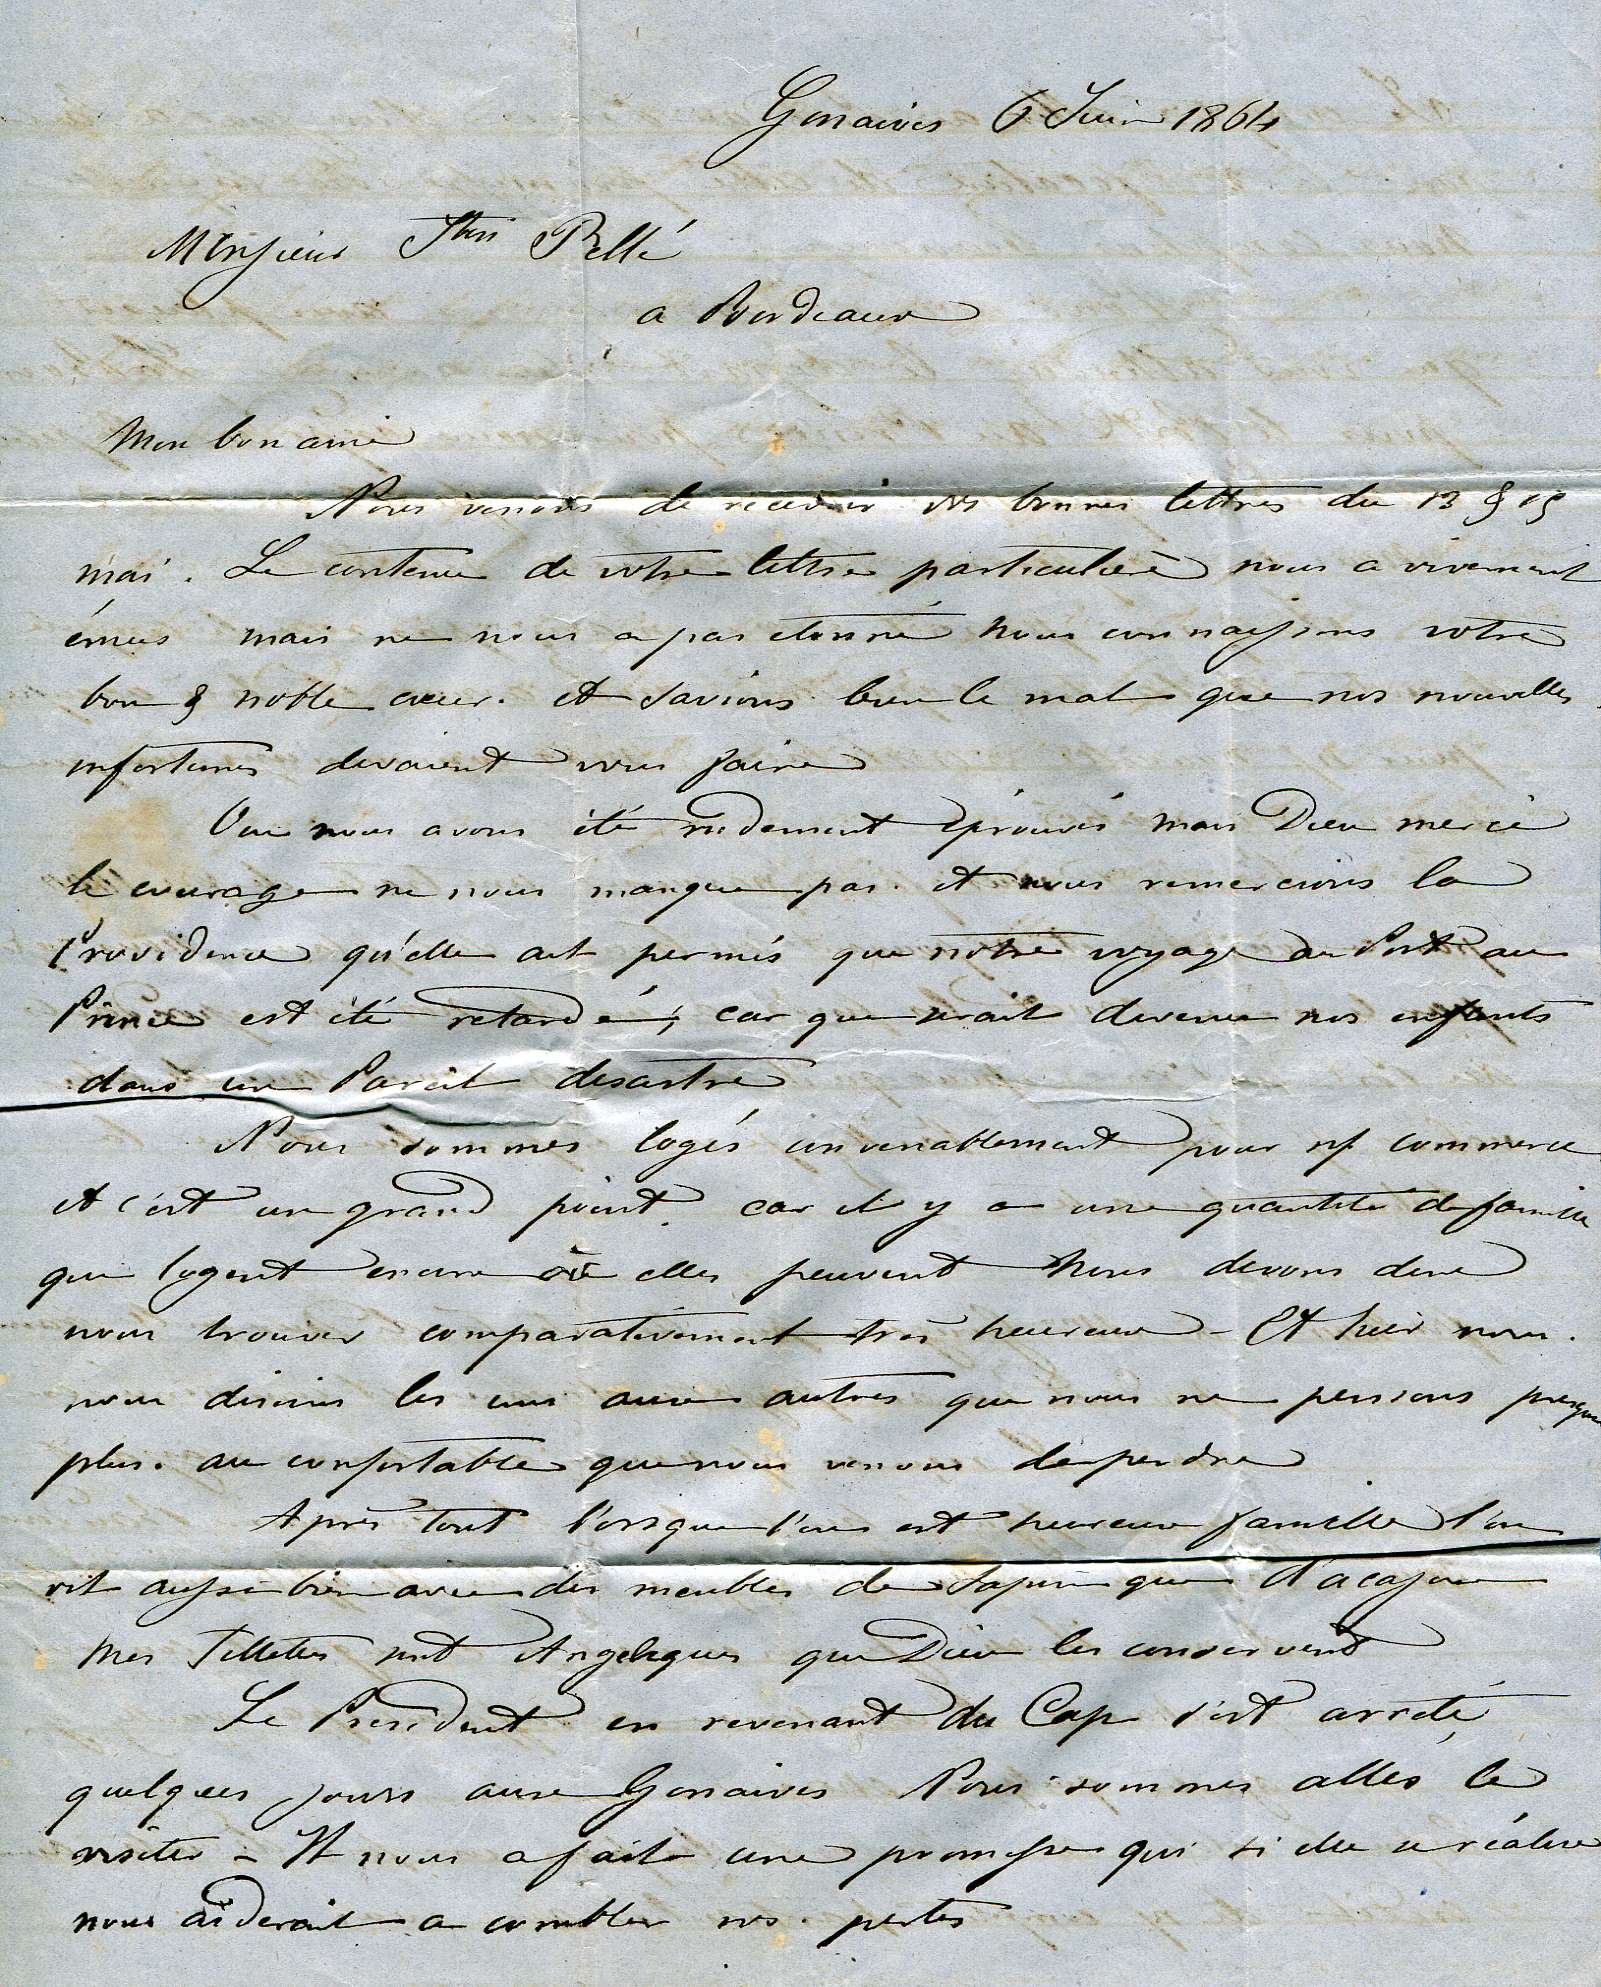 Gonaives 6 Juin 1864
Monsieur Pellé
a Bordeaux
Mon bon ami
Nous venons de recevoir vos bonnes lettres du 13 & 15
mai. Le contenu de votre lettre particulière nous a vivement
émus mais ne nous a pas étonné nous connaissions votre
bon & noble cœur. et savions bien le mal que nos nouvelles
infortunes devaient vous faire
Oui nous avons été rudement éprouvés mais Dieu merci
le courage ne nous manque pas. et nous remercions la
Providence qu'elle ait permis que notre voyage au Port au
Prince est été retardé, car que serait devenu nos enfants
dans un Pareil desastre
Nous sommes logés convenablement pour n/ commerce
et c'est un grand point. car il y a une quantité de famille
qui logent encore où elles peuvent Nous devons donc
nous trouver comparativement très heureux - Et hier nous.
nous disions les uns aux autres que nous ne pensions presque
plus. au confortable que nous venons de perdre
Après tout l'orsque l'on est heureux famille l'on
vit aussi bien avec des meubles de Sapin que d'acajou
Mes fillettes sont Angeliques que Dieu les conservent
Le President en revenant du Cap s'est arreté
quelques jours aux Gonaives Nous sommes allés le
visiter - Il nous a fait une promesse qui si elle se réalise
nous aiderait a combler nos. pertes